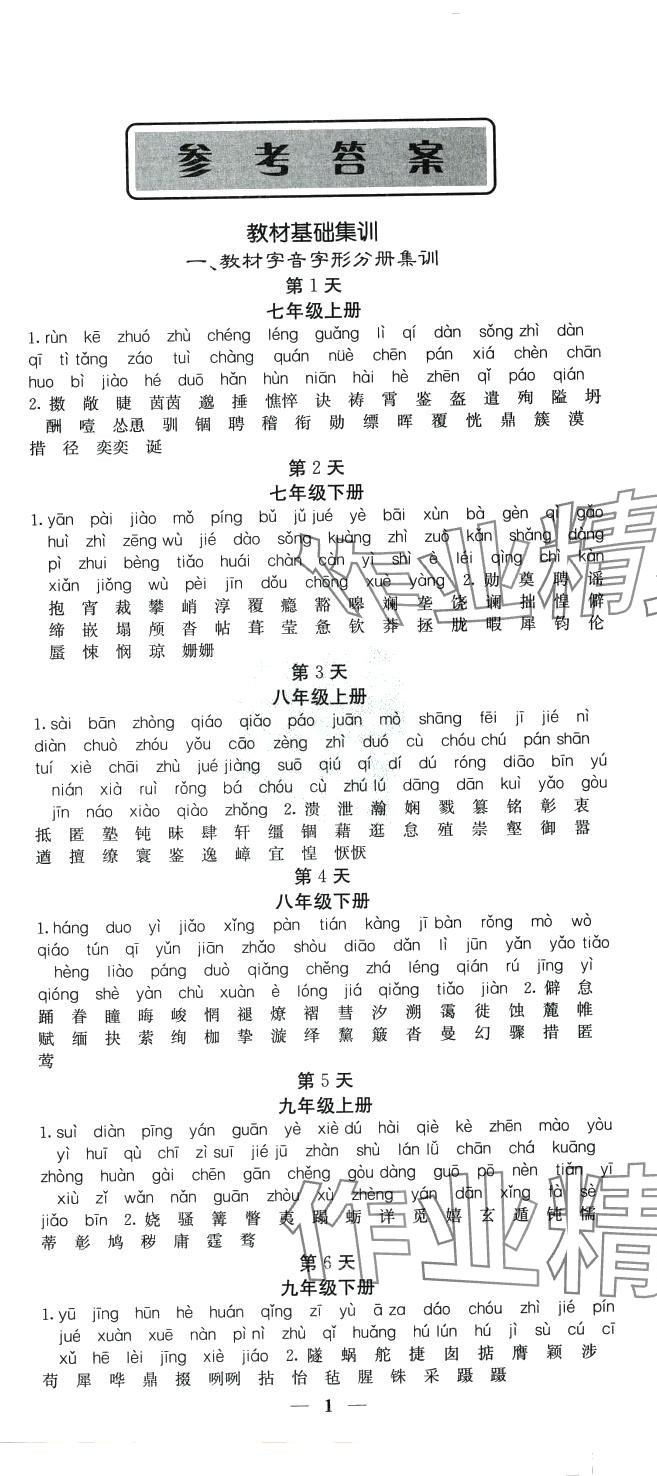 参考答案
教材基础集训
一、教材字音字形分册集训
第1天
七年级上册
1. rùn kē zhuó zhù chéng léng guǎng lì qí dàn sǒng zhì dàn
qī tì tǎng záo tuì chàng quán nüè chēn pán xiá chèn chān
huo bì jiào hé duō hǎn hùn niān hài hè zhēn qǐ páo qián
2. 擞 敞 睫 茵茵 邈 捶 憔悴 诀 祷 霄 鉴 盔 遣 殉 隘 坍
酬 噎 怂恿 驯 锢 聘 稽 衔 勋 缥 晖 覆 恍 鼎 簇 漠
措 径 奕奕 诞
第2天
七年级下册
1. yān pài jiào mǒ píng bǔ jǔ jué yè bāi xùn bà gèn qì gǎo
huì zhì zēng wù jié dào sǒng kuàng zhì zuò kǎn shǎng dàng
pì zhui bèng tiǎo huái chàn càn yì shì è léi qìng chì kàn
xiǎn jiǒng wù pèi jīn dǒu chōng xuè yàng 2. 勋 奠 聘 谣
抱 宵 裁 攀 峭 淳 覆 瘾 豁 嗥 斓 垄 饶 谰 拙 惶 僻
缔 嵌 塌 颅 沓 帖 葺 莹 惫 钦 莽 拯 胧 暇 犀 钧 伦
蜃 悚 悯 琼 姗姗
第3天
八年级上册
1. sài bān zhòng qiáo qiǎo páo juān mò shāng fēi jī jié nì
diàn chuò zhóu yǒu cāo zèng zhì duó cù chóu chú pán shān
tuí xiè chāi zhù jué jiàng suō qiú qí dí dú róng diāo bīn yú
nián xià ruì rǒng bá chóu cù zhú lú dāng dān kuì yǎo gòu
jīn náo xiào qiào zhǒng 2. 溃 泄 瀚 娴 戮 篡 铭 彰 衷
抵 匿 塾 钝 昧 肆 轩 缰 锢 藉 逛 怠 殖 崇 壑 御 嚣
遒 擅 缭 寰 鉴 逸 嶂 宜 惶 恹恹
第4天
八年级下册
1. háng duo yì jiǎo xǐng pàn tián kàng jī bàn rǒng mò wò
qiáo tún qī yǔn jiān zhǎo shòu diāo dǎn lì jūn yǎn yǎo tiǎo
hèng liào páng duò qiǎng chěng zhá léng qián rú jīng yì
qióng shè yàn chù xuàn è lóng jiá qiǎng tiǎo jiàn 2. 僻 怠
踊 眷 瞳 晦 峻 惘 褪 燎 褶 彗 汐 溯 霭 徙 蚀 麓 帷
赋 缅 扶 萦 绚 枷 挚 漩 绎 黧 簸 沓 曼 幻 骤 措 匿
莺
第5天
九年级上册
1. suì diàn pīng yán guān yè xiè dú hài qiè kè zhēn mào yòu
yì huī qù chī zì suī jié jū zhàn shù lán lǚ chān chá kuāng
zhòng huàn gài chēn gān chěng gòu dàng guō pō nèn tiǎn yī
xiù zǐ wǎn nǎn guān zhòu xù zhèng yán dān xǐng fà sè
jiāo bīn 2. 娆 骚 篝 瞥 夷 蹋 蛎 详 觅 嬉 玄 遁 钝 懦
蒂 彰 鸠 秽 庸 霆 骛
第6天
九年级下册
1. yū jīng hūn hè huán qǐng zī yù ā za dáo chóu zhì jié pín
jué xuàn xuē nàn pì nì zhù qǐ huǎng hú lún hú jì sù cú cī
xǔ hē lèi jīng xiè jiáo 2. 隧 蜗 舵 捷 囱 掂 膺 颖 涉
苟 犀 哗 鼎 掇 咧咧 拈 怡 毡 腥 铢 采 蹑 蹑
1
作业精
作业精